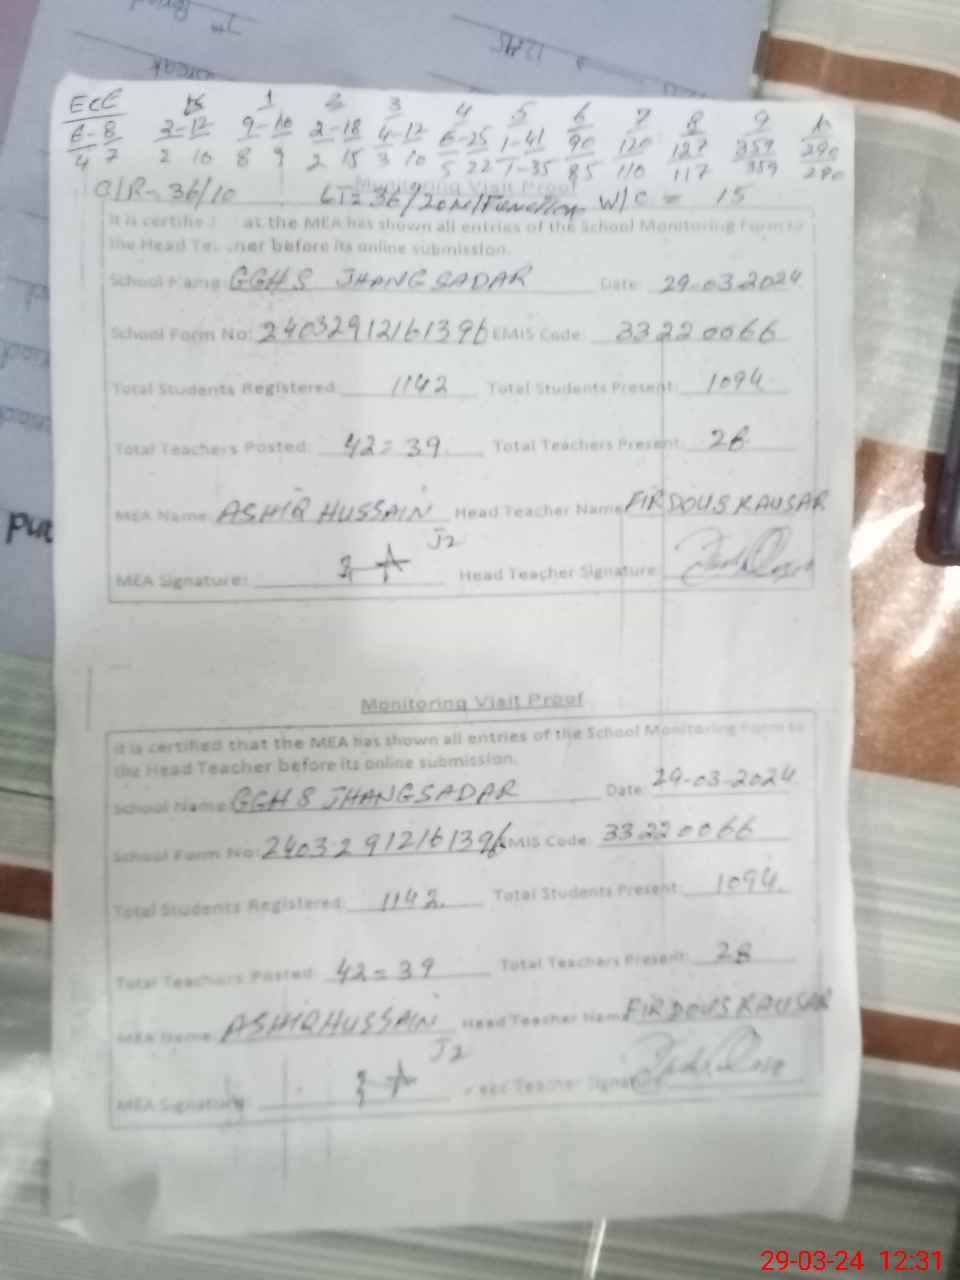 ECE 1 2 3 4 5 6 7 8 9 10
6-8 2-12 9-10 2-18 4-12 6-25 1-41 90 120 127 359 290
4 7 2 10 8 9 2 15 3 10 5 22 1-35 85 110 117 359 280
C/R- 36/10 W/C = 15
Monitoring Visit Proof
It is certifie at the MEA has shown all entries of the School Monitoring Form to
the Head Te ner before its online submission.
School Name: GGHS JHANG SADAR Date: 29-03-2024
School Form No: 24032912161396 EMIS Code: 33220066
Total Students Registered: 1142 Total Students Present: 1094
Total Teachers Posted: 42=39 Total Teachers Present: 28
MEA Name: ASHIQ HUSSAIN Head Teacher Name FIRDOUS KAUSAR
J2
MEA Signature: Head Teacher Signature:
Monitoring Visit Proof
It is certified that the MEA has shown all entries of the School Monitoring Form to
the Head Teacher before its online submission.
School Name: GGHS JHANG SADAR Date: 29-03-2024
School Form No: 24032912161396 EMIS Code: 33220066
Total Students Registered: 1142 Total Students Present: 1094
Total Teachers Posted: 42=39 Total Teachers Present: 28
MEA Name: ASHIQ HUSSAIN Head Teacher Name FIRDOUS KAUSAR
J2
MEA Signature: Head Teacher Signature
29-03-24 12:31